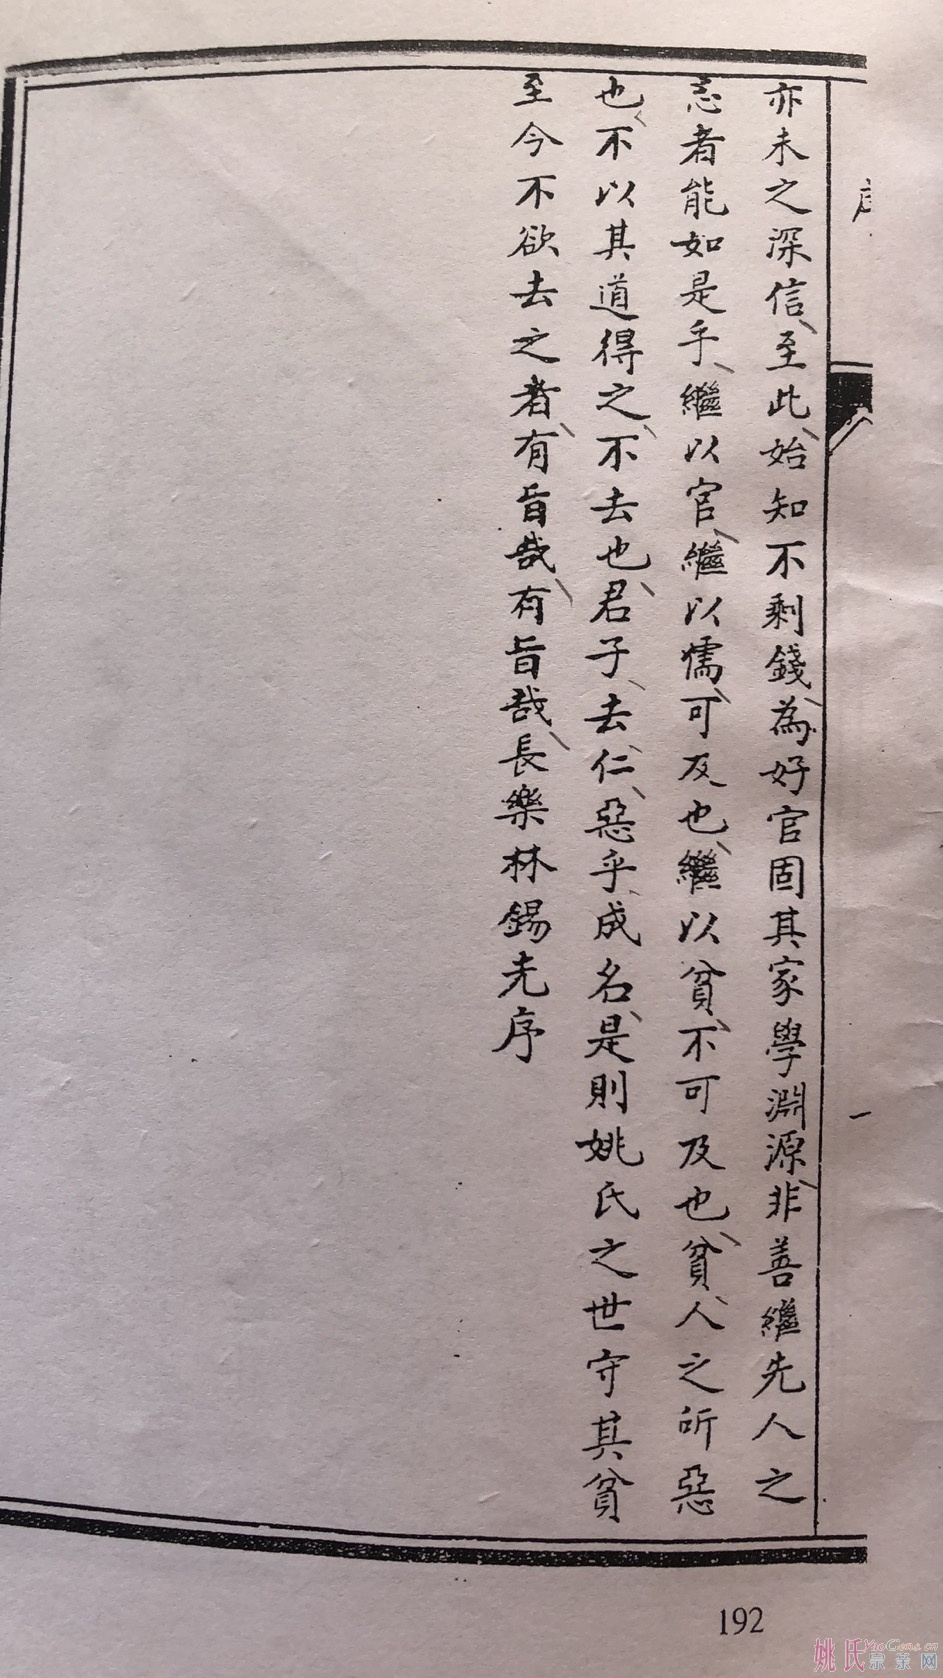 亦未之深信、至此、始知不剩錢、為好官固其家學淵源、非善繼先人之
志者能如是乎、繼以官、繼以儒、可及也、繼以貧、不可及也、貧、人之所惡
也、不以其道得之、不去也、君子、去仁、惡乎、成名、是則姚氏之世守其貧
至今不欲去之者、有旨哉、有旨哉、長樂林錫光序
一
192
姚氏宗亲网
YaoGens.cn